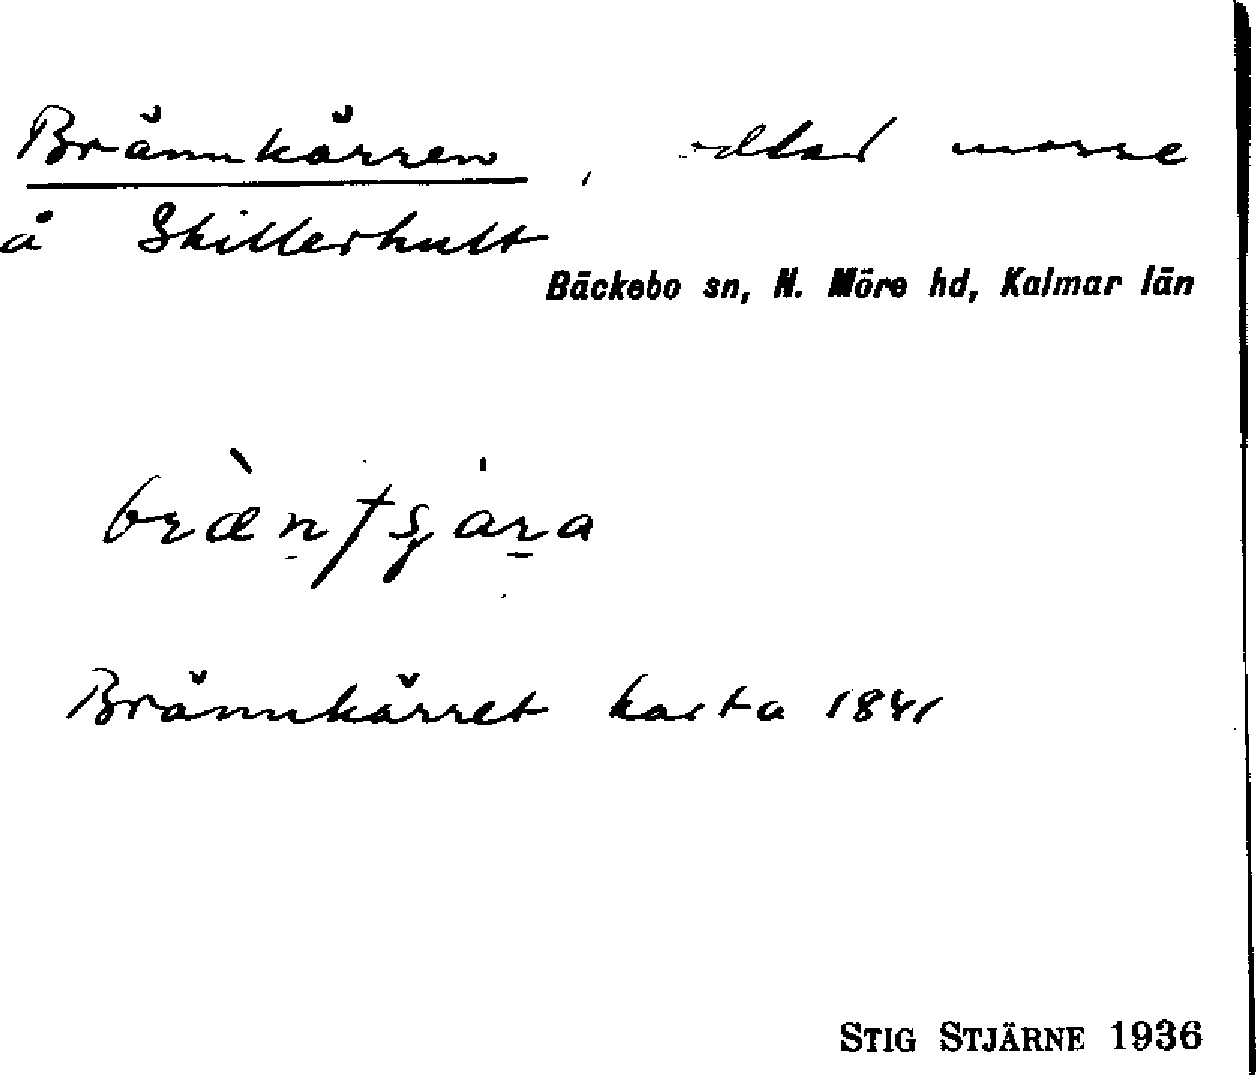 Brännkärren, odlad mosse
å Skillerhult
Bäckebo sn, N. Möre hd, Kalmar län
Brännkärret karta 1841
STIG STJÄRNE 1936